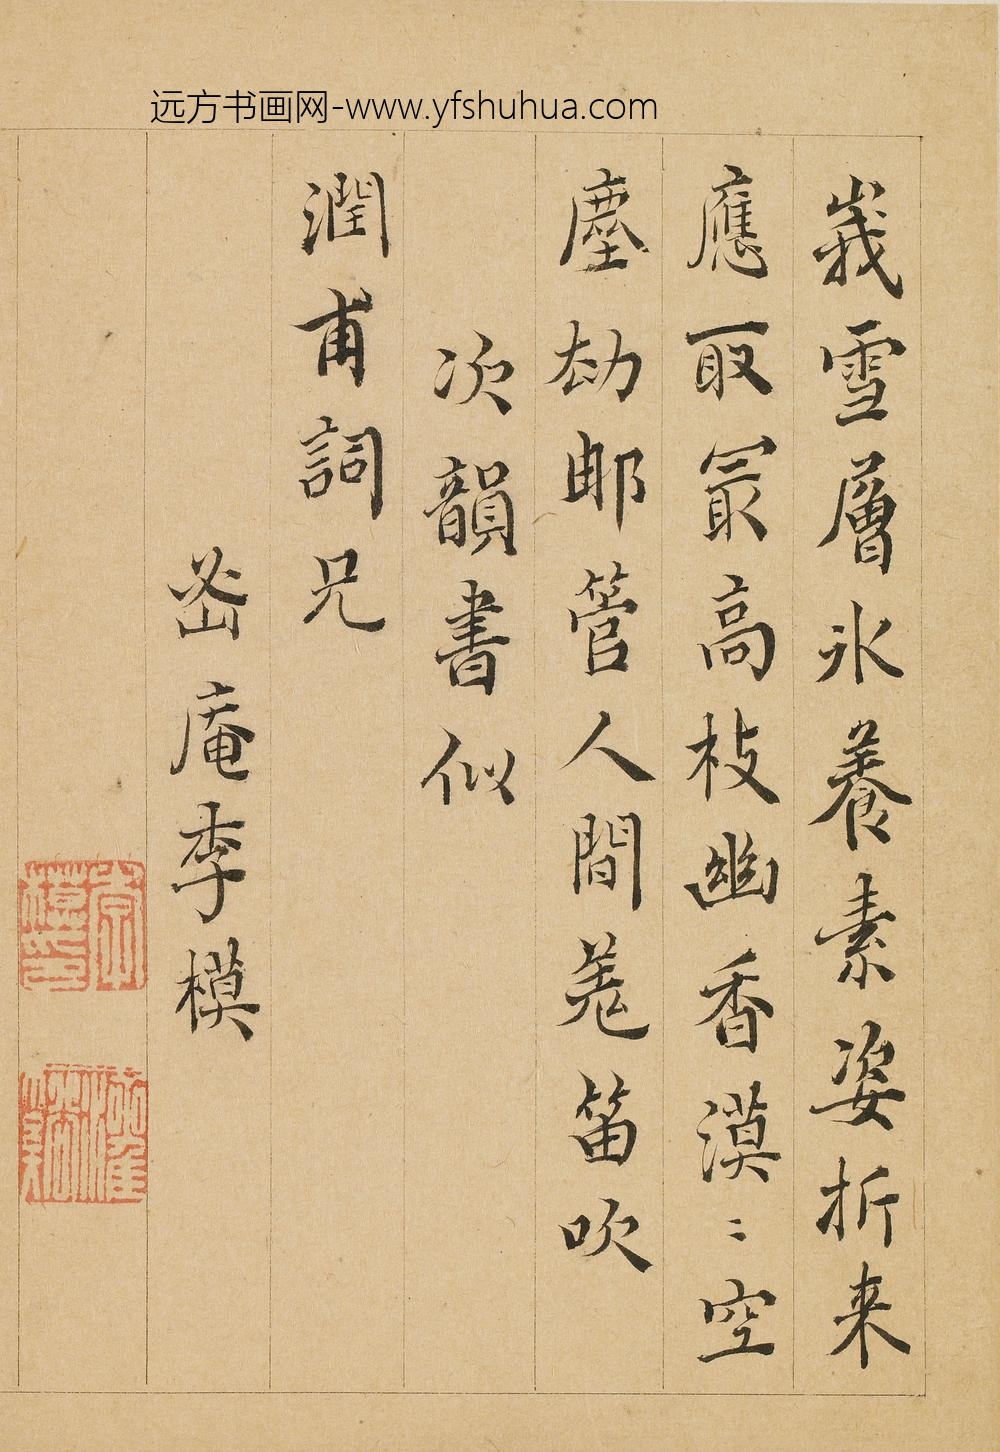 远方书画网-www.yfshuhua.com
峩雪層氷養素姿折来
應取最高枝幽香漠〻空
塵劫郍管人間羌笛吹
次韻書似
潤甫詞兄
密庵李模